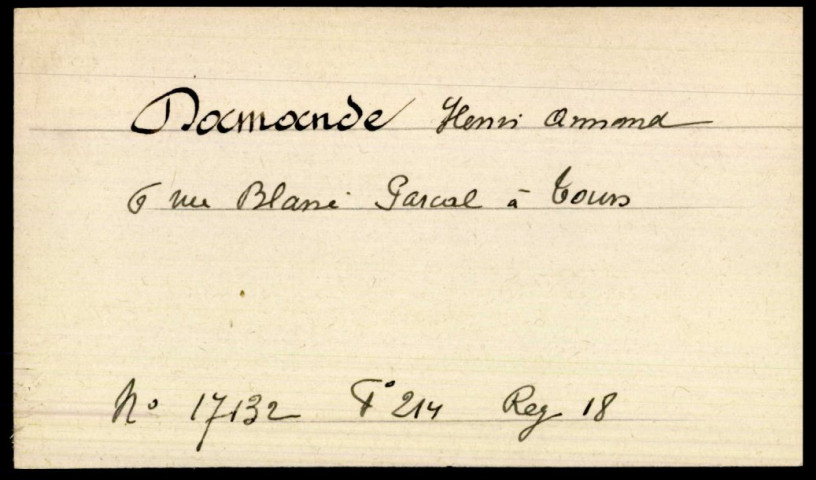 Damande Henri Armand
6 rue Blaise Pascal à Tours
No 17132 Fo 214 Reg 18